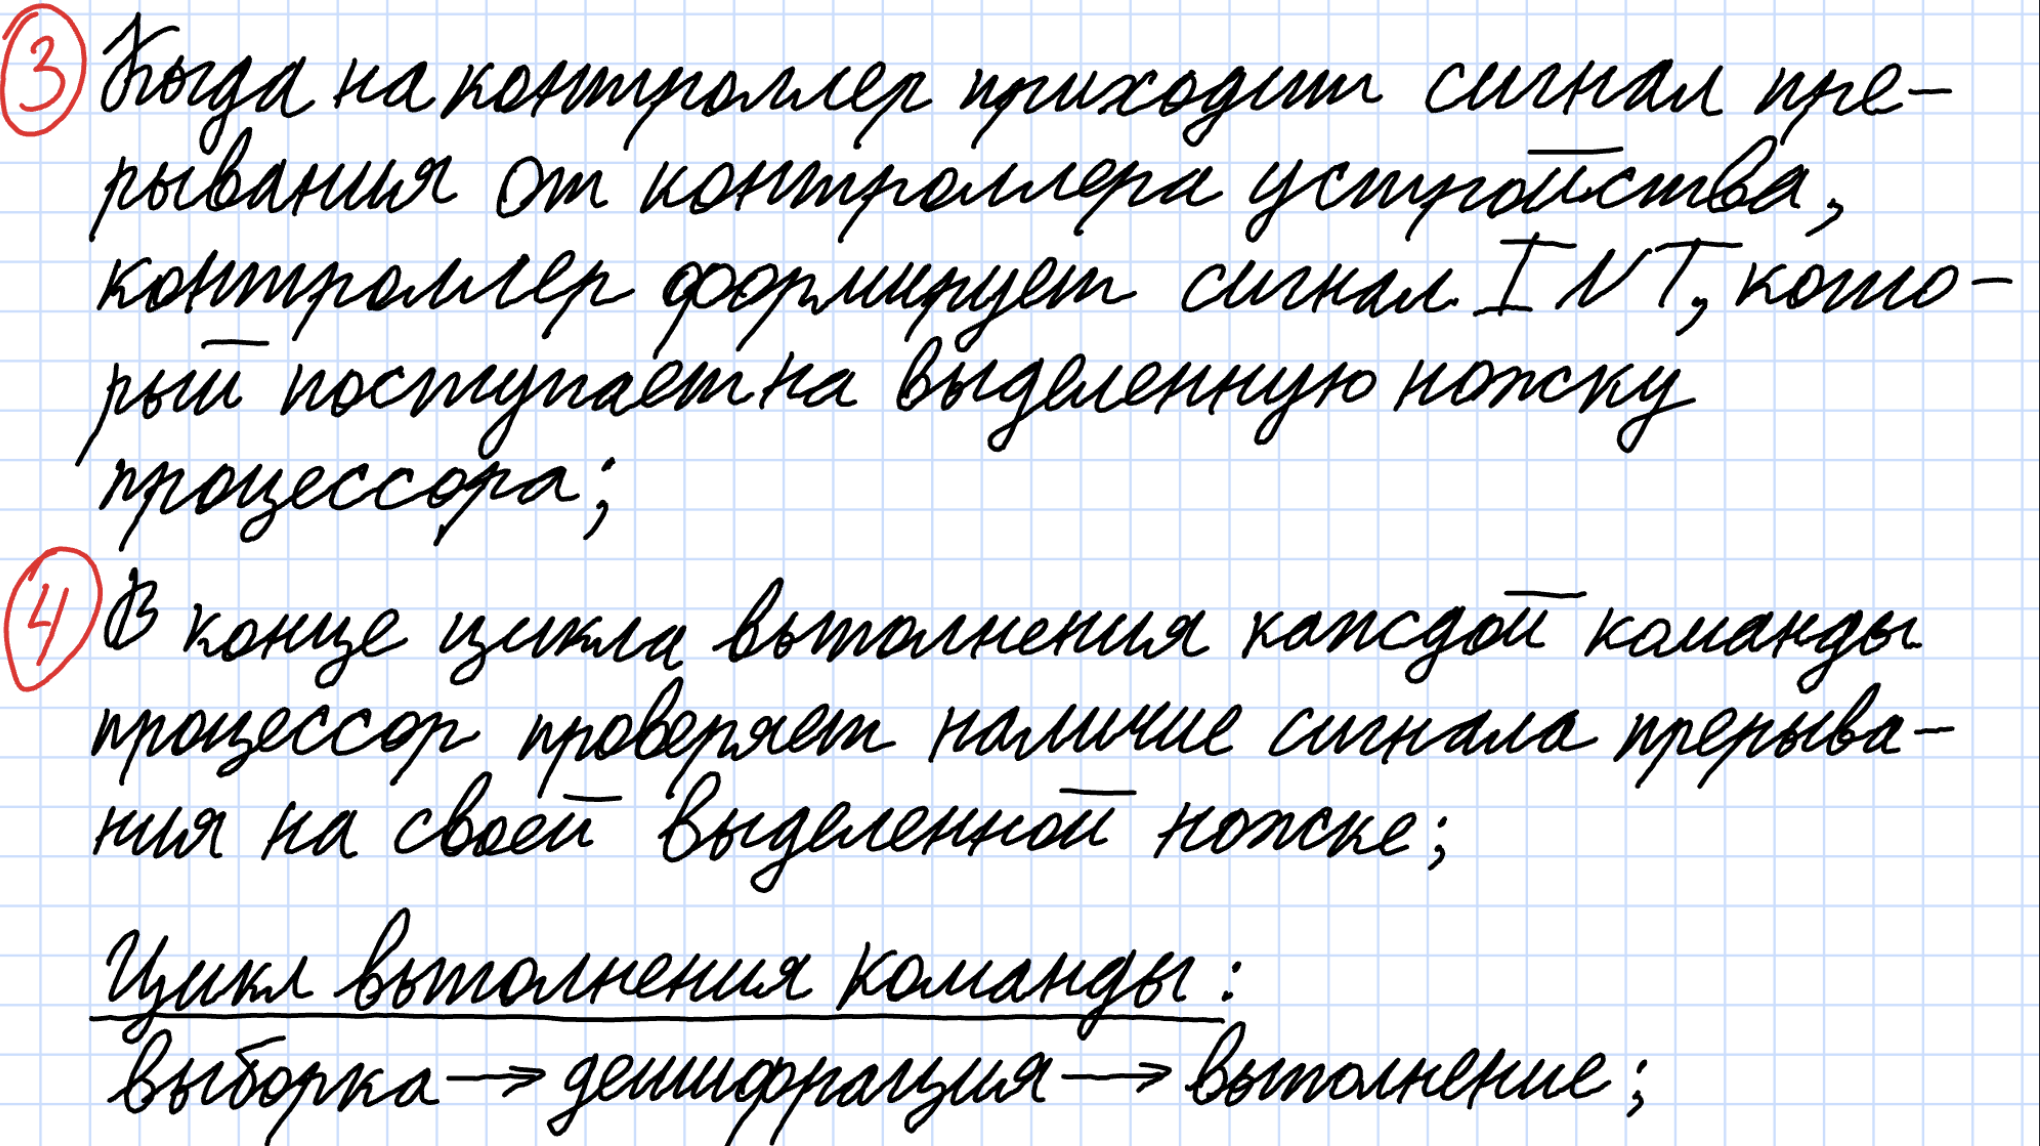 ③ Когда на контроллер приходит сигнал пре-
рывания от контроллера устройства,
контроллер формирует сигнал INT, кото-
рый поступает на выделенную ножку
процессора;
④ В конце цикла выполнения каждой команды
процессор проверяет наличие сигнала прерыва-
ния на своей выделенной ножке;
Цикл выполнения команды:
выборка → дешифрация → выполнение;